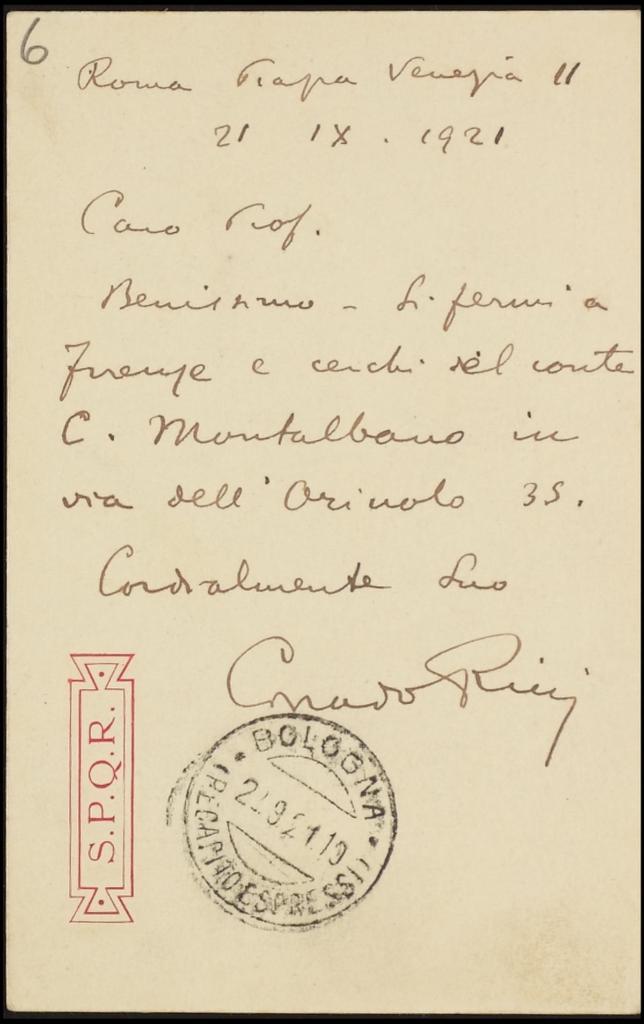 6
Roma Piazza Venezia 11
21 IX . 1921
Caro Prof.
Benissimo - Si fermi a
Firenze e cerchi del conte
C. Montalbano in
via dell' Oriuolo 35.
Cordialmente Suo
Corrado Ricci
S.P.Q.R.
BOLOGNA
22.9.21.19
(RECAPITO ESPRESSI)